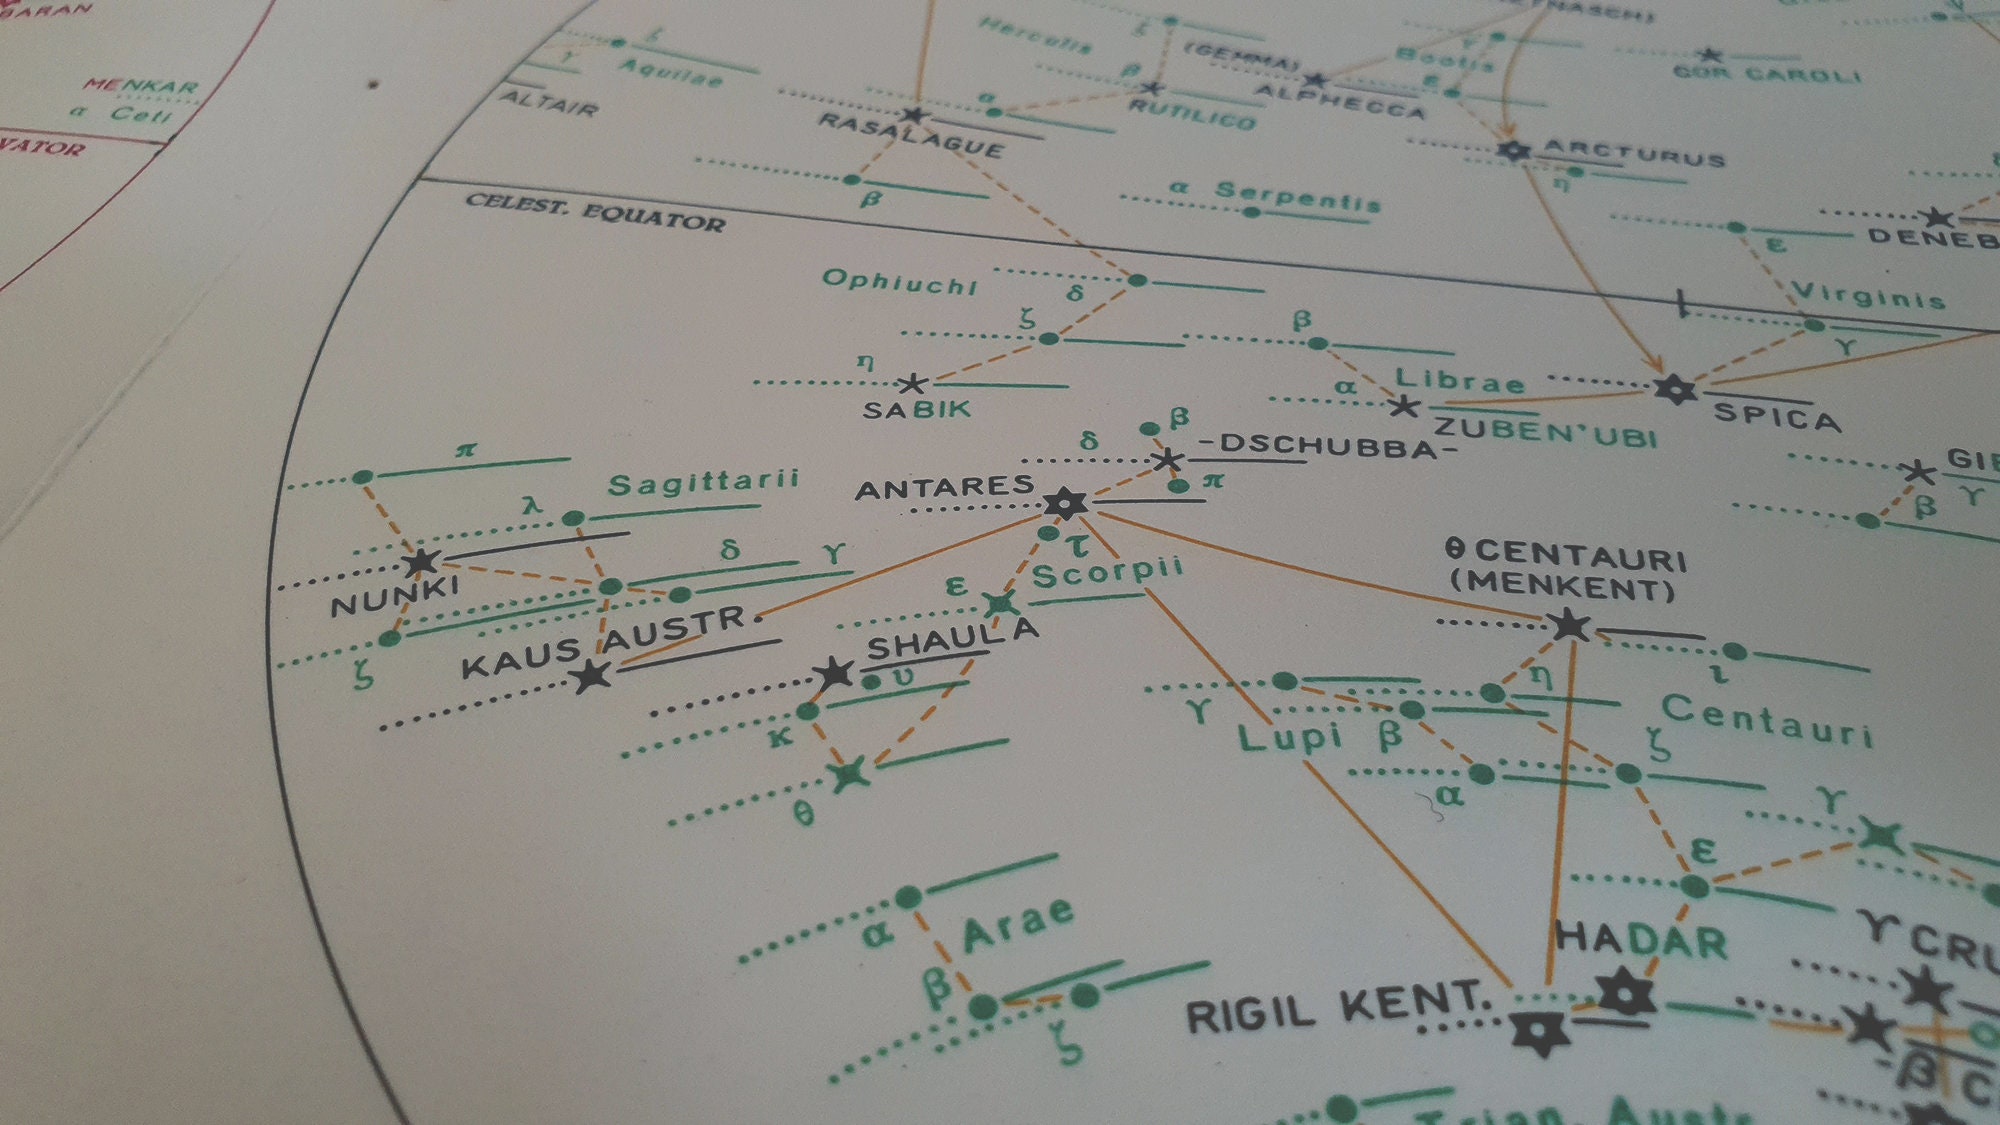 MENKAR
α Ceti
ζ
γ
Aquilae
ALTAIR
Herculis
ζ
β
α
RUTILICO
RASALAGUE
β
(GEMMA)
ALPHECCA
Bootis
γ
ε
COR CAROLI
ARCTURUS
η
α Serpentis
CELEST. EQUATOR
DENEB
ε
Virginis
γ
Ophiuchi
δ
ζ
η
SABIK
β
α
Librae
ZUBEN'UBI
SPICA
β
δ
-DSCHUBBA-
π
ANTARES
τ
Scorpii
ε
SHAULA
υ
κ
θ
π
λ
Sagittarii
δ
γ
NUNKI
ζ
KAUS AUSTR.
γ
β
θ CENTAURI
(MENKENT)
ι
η
Centauri
ζ
γ
Lupi
β
α
ε
γ
HADAR
RIGIL KENT.
α
Arae
β
ζ